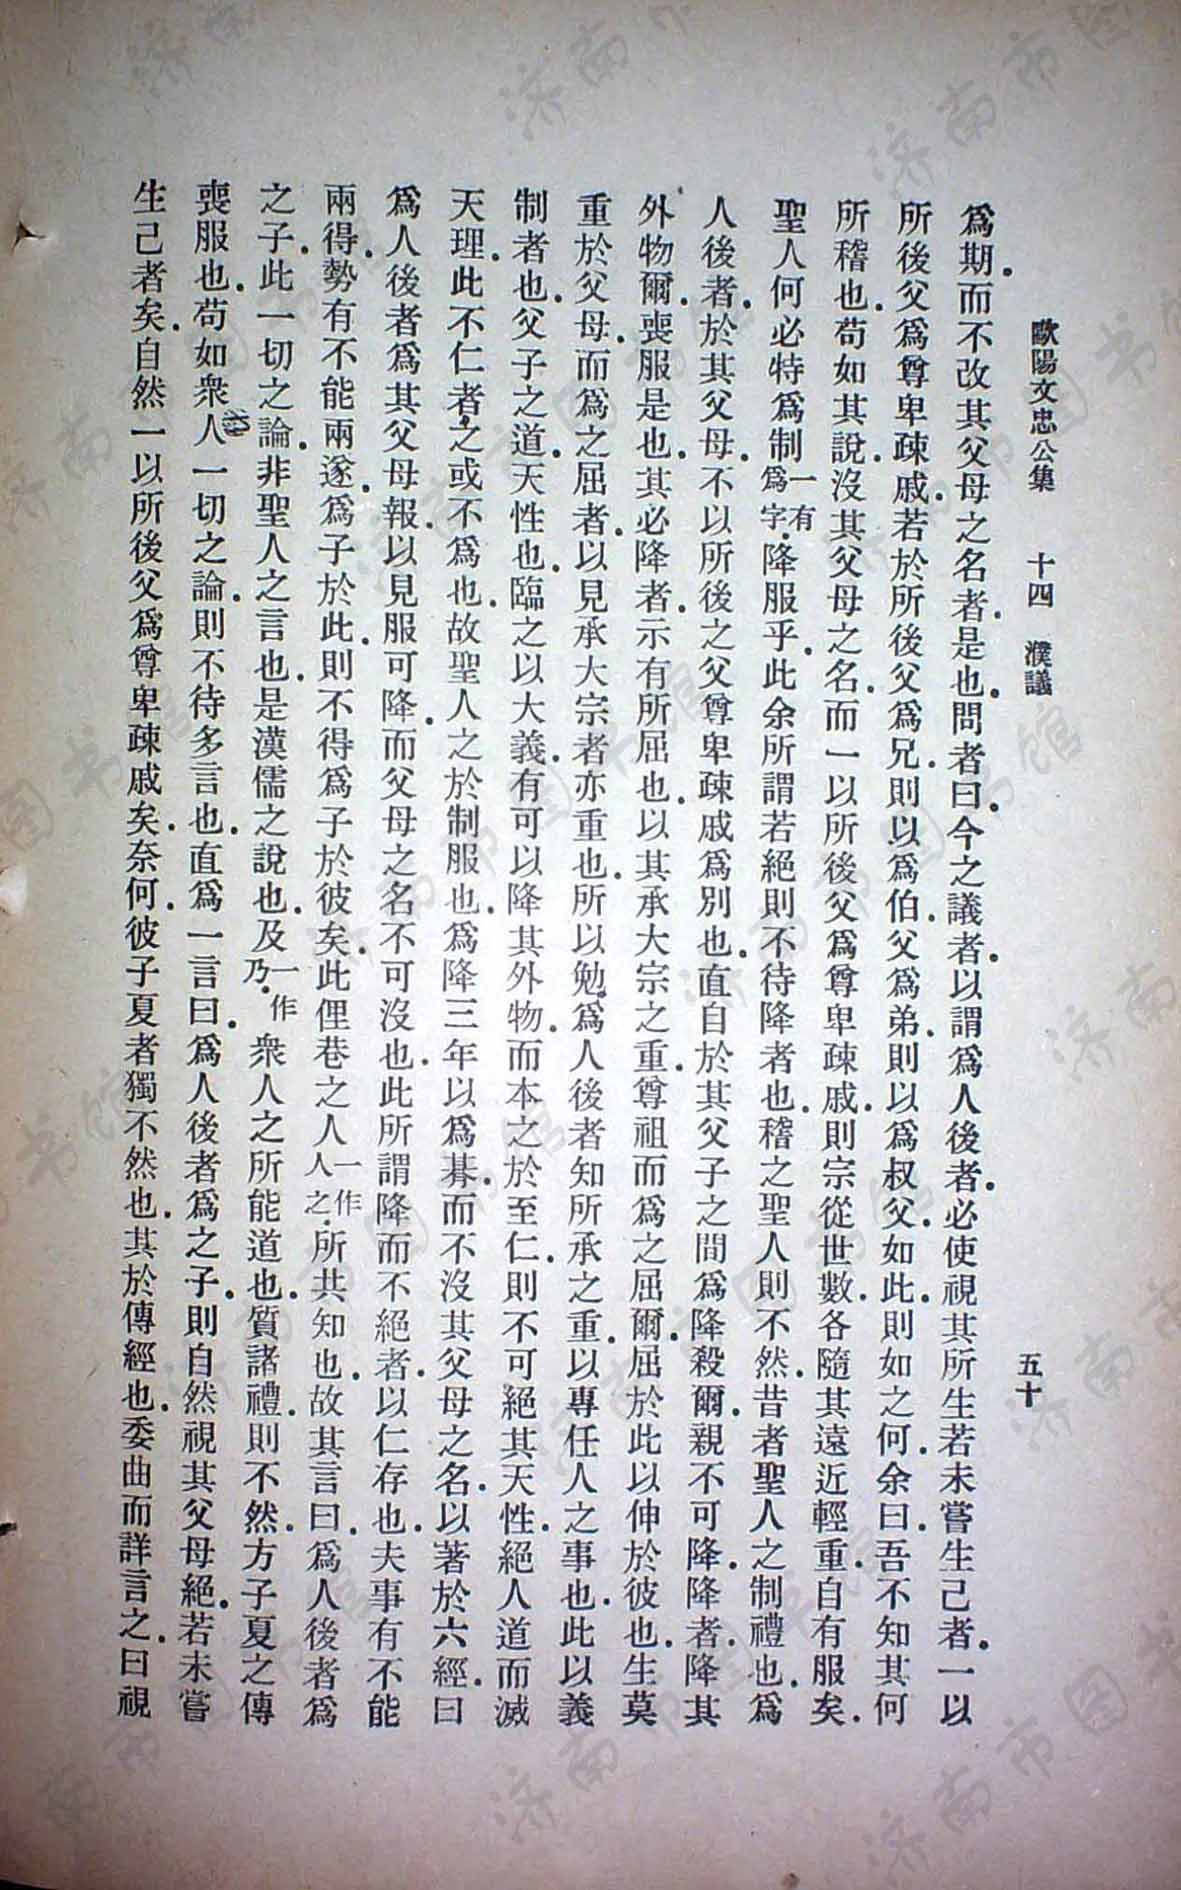 歐陽文忠公集 十四 濮議 五十
爲期.而不改其父母之名者.是也.問者曰.今之議者.以謂爲人後者.必使視其所生若未嘗生己者.一以
所後父爲尊卑疎戚.若於所後父爲兄.則以爲伯.父爲弟.則以爲叔父.如此.則如之何.余曰.吾不知其何
所稽也.苟如其說.沒其父母之名.而一以所後父爲尊卑疎戚.則宗從世數.各隨其遠近輕重.自有服矣.
聖人何必特爲制一有爲字.降服乎.此余所謂若絕則不待降者也.稽之聖人則不然.昔者聖人之制禮也.爲
人後者.於其父母.不以所後之父尊卑疎戚爲別也.直自於其父子之間爲降殺爾.親不可降.降者.降其
外物爾.喪服是也.其必降者.示有所屈也.以其承大宗之重.尊祖而爲之屈爾.屈於此以伸於彼也.生莫
重於父母.而爲之屈者.以見承大宗者亦重也.所以勉爲人後者知所承之重.以專任人之事也.此以義
制者也.父子之道.天性也.臨之以大義.有可以降其外物.而本之於至仁.則不可絕其天性.絕人道而滅
天理.此不仁者之或不爲也.故聖人之於制服也.爲降三年以爲朞.而不沒其父母之名.以著於六經.曰
爲人後者爲其父母報.以見服可降.而父母之名不可沒也.此所謂降而不絕者.以仁存也.夫事有不能
兩得.勢有不能兩遂.爲子於此.則不得爲子於彼矣.此俚巷之人一作人之.所共知也.故其言曰.爲人後者爲
之子.此一切之論.非聖人之言也.是漢儒之說也.及一作乃.衆人之所能道也.質諸禮.則不然.方子夏之傳
喪服也.苟如衆人一切之論.則不待多言也.直爲一言曰.爲人後者爲之子.則自然視其父母絕.若未嘗
生己者矣.自然一以所後父爲尊卑疎戚矣.奈何.彼子夏者獨不然也.其於傳經也.委曲而詳言之.曰視